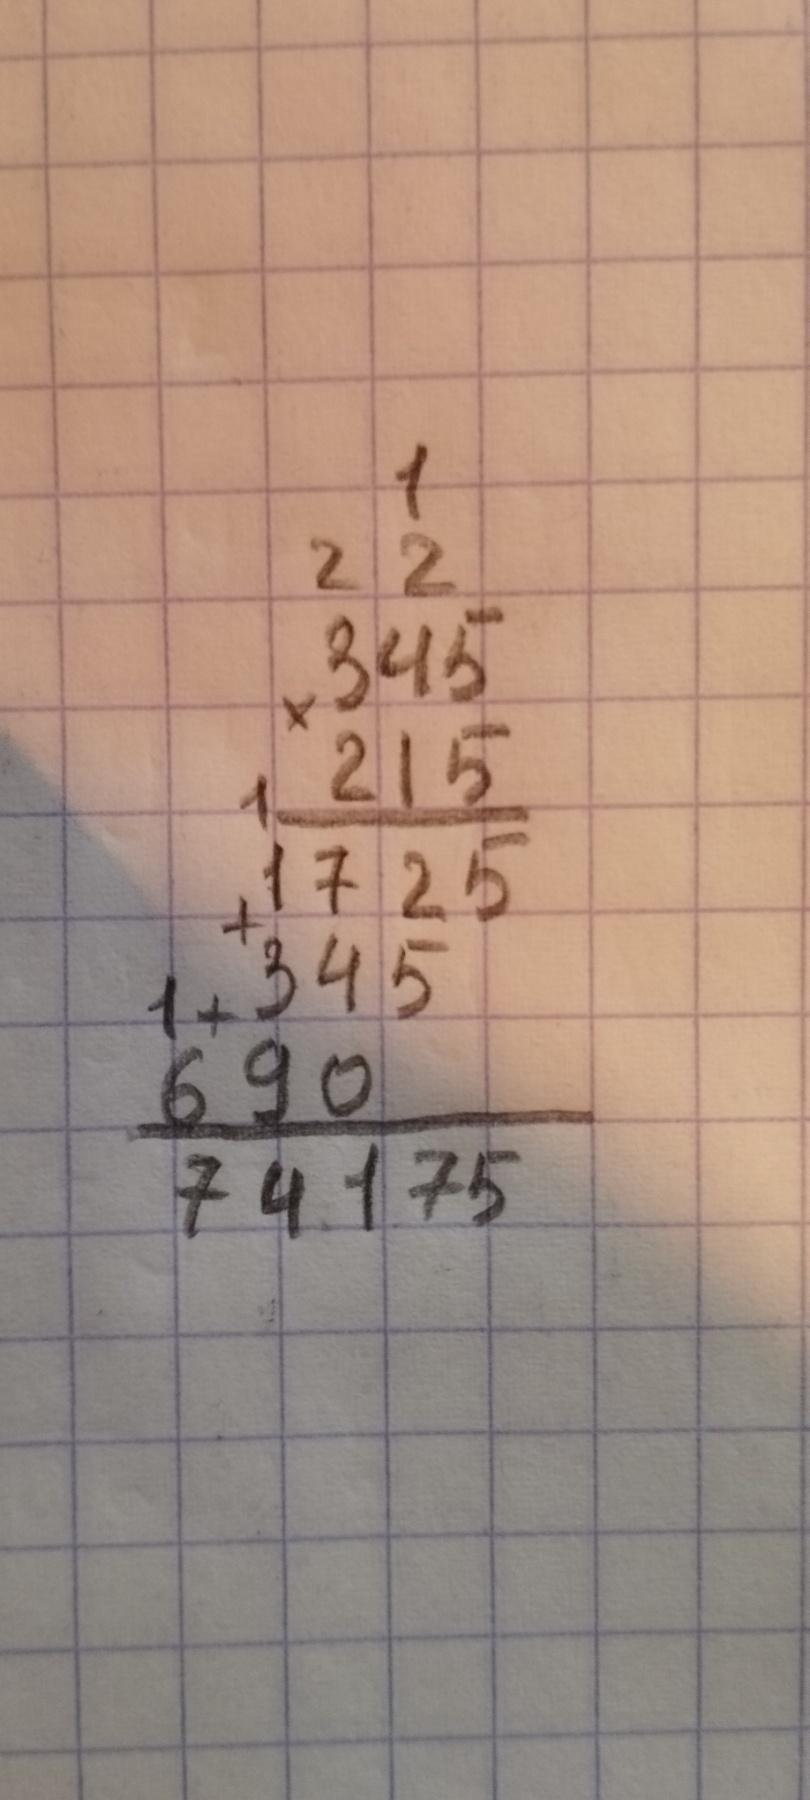 1
2 2
345
×
215
1
1725
+
345
1 +
690
74175